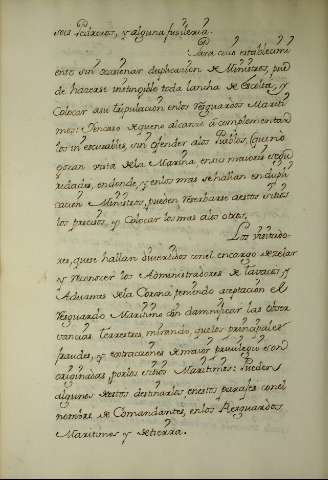 seis Pedreros, y alguna fusileria.
Para cuio establecimi
ento sin ocasionar duplicacion de Ministros, pue
de hacerse inteligible toda lancha de Escolta, y
Colocar asu tripulacion enlos Resguardos Mariti
mos: Encaso dequeno alcance à complementar
los inescusables, sin ofender alos Pueblos, (queno
gozan vista dela Marina, ensus maiores segu
ridades, endonde, y enlos mas sehallan endupli
cacion Ministros, pueden reserbarse aestos sitios
los precisos, y Colocar los mas alos otros.
Los visitado
res, quese hallan divertidos conel encargo dezelar
y reconocer los Administradores de tavacos y
Aduanas dela Corona teniendo aceptacion el
Resguardo Maritimo sin damnificar las obser
vancias terrestres, mirando, quelos principales
fraudes, y extracciones demaior privilegio son
originadas, porlos sitios Maritimos: Pueden
algunos destos destinarse enestos parajes conel
nombre de Comandantes, enlos Resguardos
Maritimos y detierra.